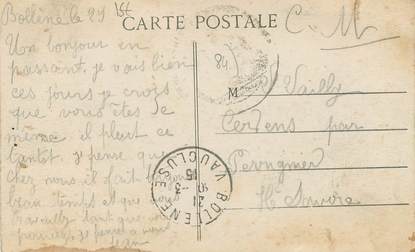 Bollène le 29
CARTE POSTALE
C. M
Un bonjour en
passant, je vais bien
ces jours je crois
que vous êtes de
même. il pleut ce
tantôt. je pense que
chez nous il fait
beau temps et que vous
travaillez
je pense à vous
Jean
84
M
Vailly
Cervens par
Perrignier
Hte Savoie
BOLLENE
VAUCLUSE
21
3
15